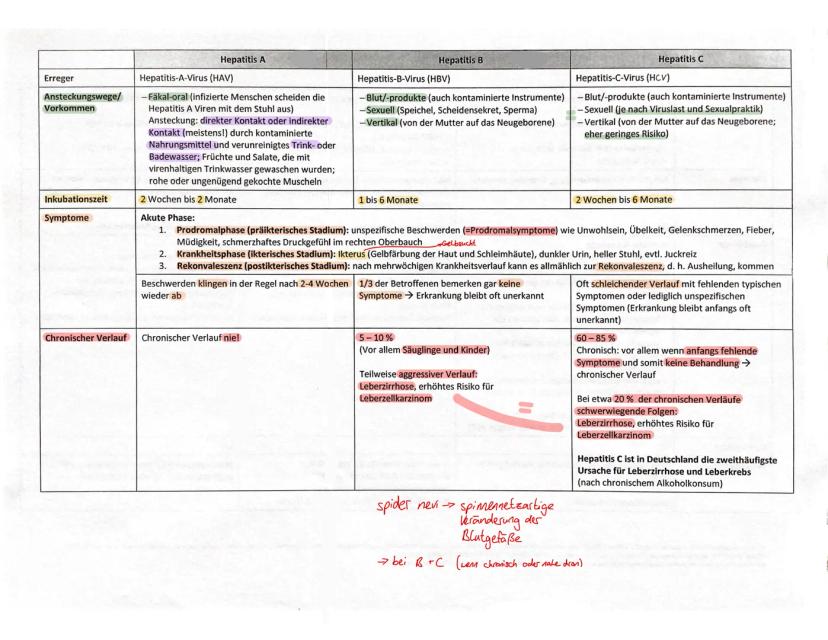 Hepatitis A
Hepatitis B
Hepatitis C
Erreger
Hepatitis-A-Virus (HAV)
Hepatitis-B-Virus (HBV)
Hepatitis-C-Virus (HCV)
Ansteckungswege/
Vorkommen
– Fäkal-oral (infizierte Menschen scheiden die
Hepatitis A Viren mit dem Stuhl aus)
Ansteckung: direkter Kontakt oder indirekter
Kontakt (meistens!) durch kontaminierte
Nahrungsmittel und verunreinigtes Trink- oder
Badewasser; Früchte und Salate, die mit
virenhaltigen Trinkwasser gewaschen wurden;
rohe oder ungenügend gekochte Muscheln
– Blut/-produkte (auch kontaminierte Instrumente)
– Sexuell (Speichel, Scheidensekret, Sperma)
– Vertikal (von der Mutter auf das Neugeborene)
– Blut/-produkte (auch kontaminierte Instrumente)
= – Sexuell (je nach Viruslast und Sexualpraktik)
– Vertikal (von der Mutter auf das Neugeborene;
eher geringes Risiko)
Inkubationszeit
2 Wochen bis 2 Monate
1 bis 6 Monate
2 Wochen bis 6 Monate
Symptome
Akute Phase:
1. Prodromalphase (präikterisches Stadium): unspezifische Beschwerden (=Prodromalsymptome) wie Unwohlsein, Übelkeit, Gelenkschmerzen, Fieber,
Müdigkeit, schmerzhaftes Druckgefühl im rechten Oberbauch
Gelbsucht
2. Krankheitsphase (ikterisches Stadium): Ikterus (Gelbfärbung der Haut und Schleimhäute), dunkler Urin, heller Stuhl, evtl. Juckreiz
3. Rekonvaleszenz (postikterisches Stadium): nach mehrwöchigen Krankheitsverlauf kann es allmählich zur Rekonvaleszenz, d. h. Ausheilung, kommen
Beschwerden klingen in der Regel nach 2-4 Wochen
wieder ab
1/3 der Betroffenen bemerken gar keine
Symptome → Erkrankung bleibt oft unerkannt
Oft schleichender Verlauf mit fehlenden typischen
Symptomen oder lediglich unspezifischen
Symptomen (Erkrankung bleibt anfangs oft
unerkannt)
Chronischer Verlauf
Chronischer Verlauf nie!
5 – 10 %
(Vor allem Säuglinge und Kinder)
Teilweise aggressiver Verlauf:
Leberzirrhose, erhöhtes Risiko für
Leberzellkarzinom
=
60 – 85 %
Chronisch: vor allem wenn anfangs fehlende
Symptome und somit keine Behandlung →
chronischer Verlauf
Bei etwa 20 % der chronischen Verläufe
schwerwiegende Folgen:
Leberzirrhose, erhöhtes Risiko für
Leberzellkarzinom
Hepatitis C ist in Deutschland die zweithäufigste
Ursache für Leberzirrhose und Leberkrebs
(nach chronischem Alkoholkonsum)
spider nevi → spinnennetzartige
Veränderung der
Blutgefäße
→ bei B + C (wenn chronisch oder nahe dran)